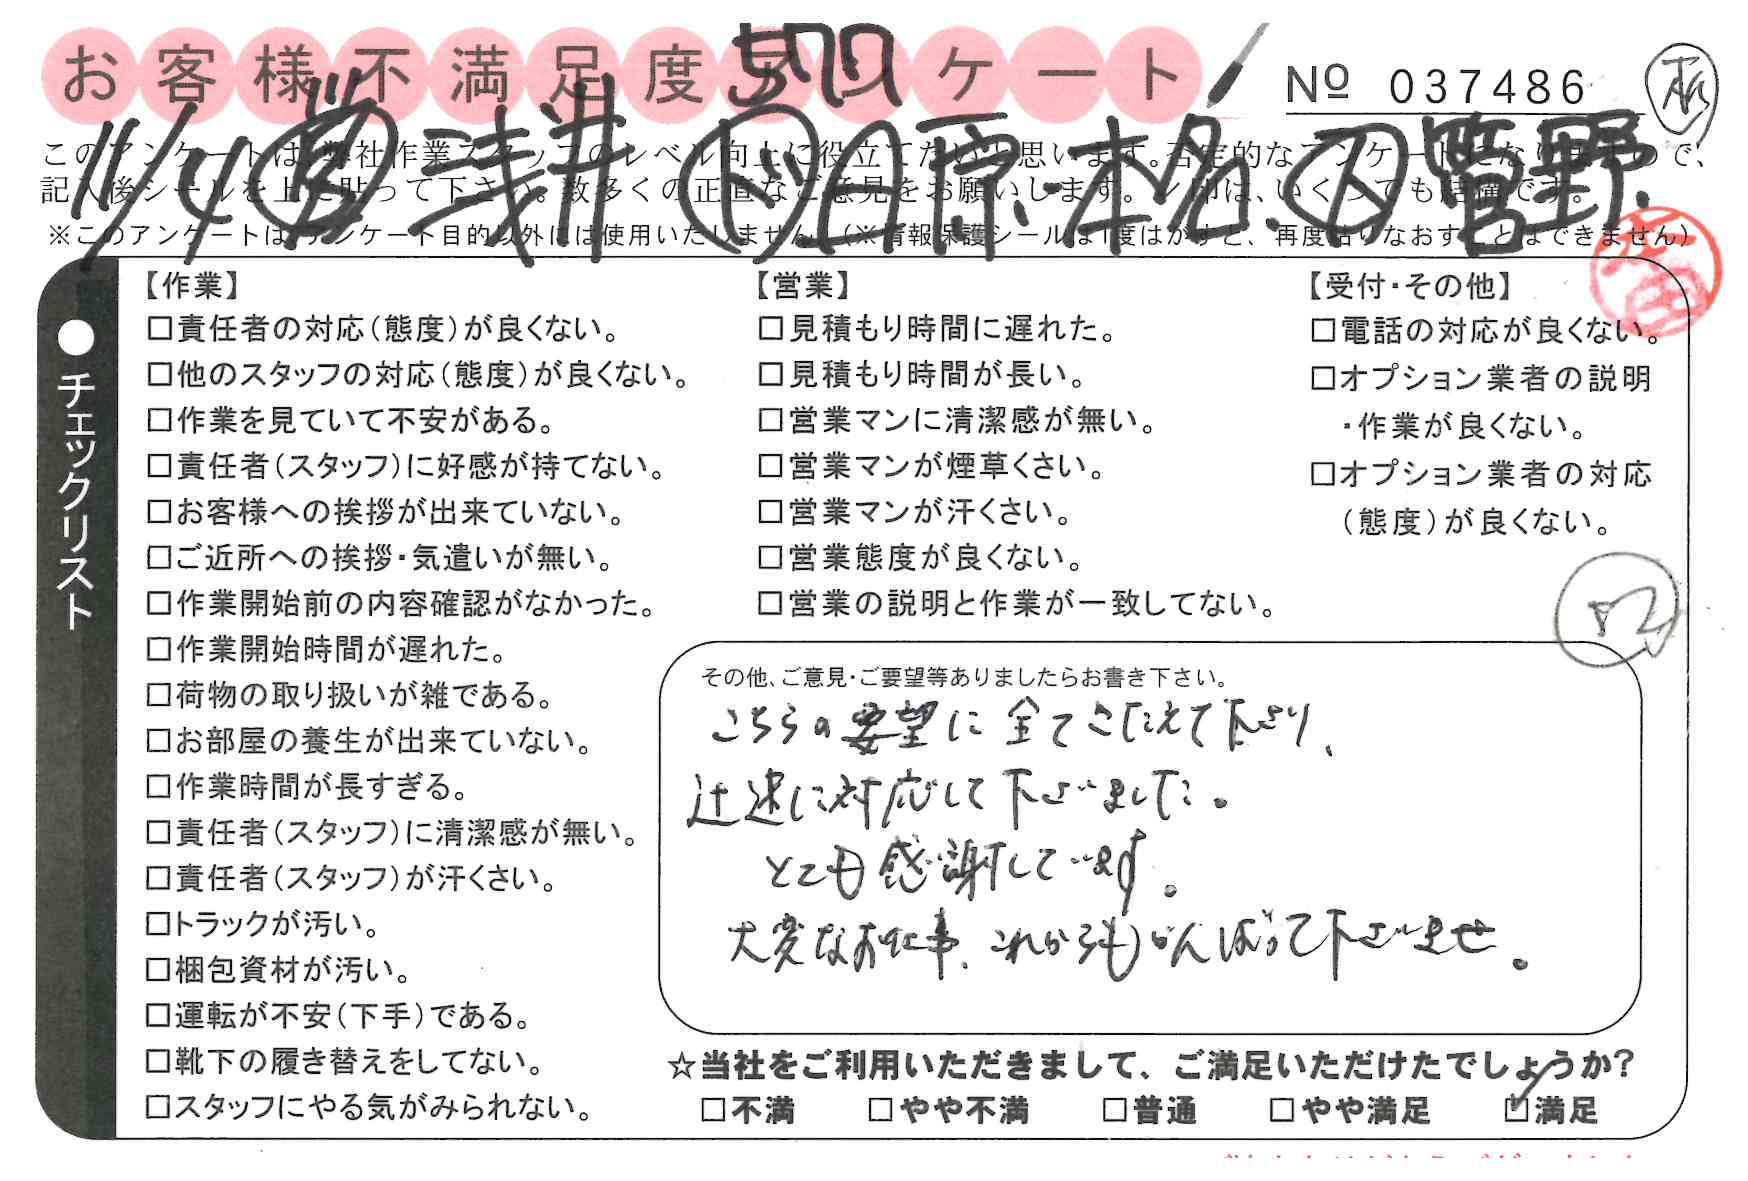 お客様不満足度アンケート
№ 037486
11/4 浅井 原 本名 菅野
このアンケートは、弊社作業スタッフのレベル向上に役立てたいと思います。否定的なアンケートになりますので、
記入後シールを上に貼って下さい。数多くの正直なご意見をお願いします。レ印は、いくつでも結構です。
※このアンケートは、アンケート目的以外には使用いたしません。(※情報保護シールは1度はがすと、再度貼りなおすことはできません)
●チェックリスト
【作業】
□責任者の対応(態度)が良くない。
□他のスタッフの対応(態度)が良くない。
□作業を見ていて不安がある。
□責任者(スタッフ)に好感が持てない。
□お客様への挨拶が出来ていない。
□ご近所への挨拶・気遣いが無い。
□作業開始前の内容確認がなかった。
□作業開始時間が遅れた。
□荷物の取り扱いが雑である。
□お部屋の養生が出来ていない。
□作業時間が長すぎる。
□責任者(スタッフ)に清潔感が無い。
□責任者(スタッフ)が汗くさい。
□トラックが汚い。
□梱包資材が汚い。
□運転が不安(下手)である。
□靴下の履き替えをしてない。
□スタッフにやる気がみられない。
【営業】
□見積もり時間に遅れた。
□見積もり時間が長い。
□営業マンに清潔感が無い。
□営業マンが煙草くさい。
□営業マンが汗くさい。
□営業態度が良くない。
□営業の説明と作業が一致してない。
【受付・その他】
□電話の対応が良くない。
□オプション業者の説明
・作業が良くない。
□オプション業者の対応
(態度)が良くない。
その他、ご意見・ご要望等ありましたらお書き下さい。
こちらの要望に全てこたえて下さり、
迅速に対応して下さいました。
とても感謝しています。
大変なお仕事、これからもがんばって下さいませ。
☆当社をご利用いただきまして、ご満足いただけたでしょうか?
□不満 □やや不満 □普通 □やや満足 ☑満足